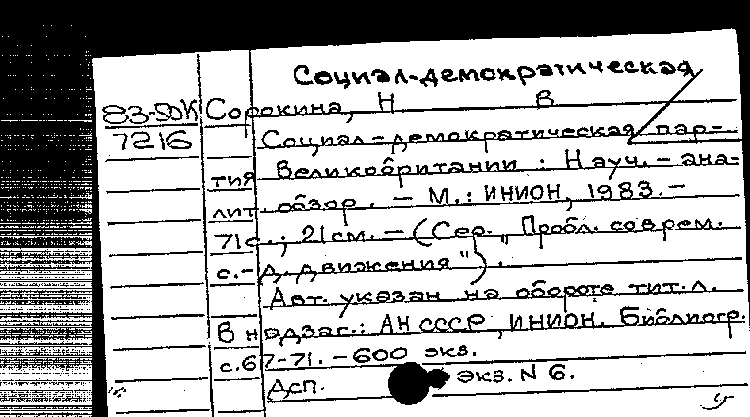 Социал-демократическая
83-50К Сорокина, Н В
7216 Социал-демократическая пар-
тия Великобритании : Науч.-ана-
лит. обзор. - М.: ИНИОН, 1983.-
71с.; 21см. - (Сер. "Пробл. соврем.
с.-д. движения").
Авт. указан на обороте тит. л.
В надзаг.: АН СССР, ИНИОН. Библиогр.:
с.67-71. - 600 экз.
Асп. экз. N 6.